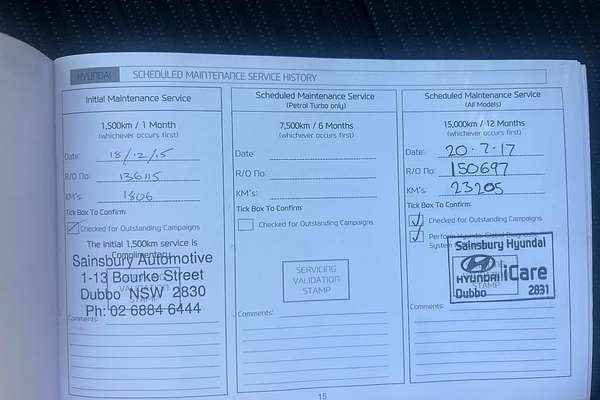 HYUNDAI SCHEDULED MAINTENANCE SERVICE HISTORY
Initial Maintenance Service
1,500km / 1 Month
(whichever occurs first)
Date: 18/12/15
R/O No: 136115
KM's: 1806
Tick Box To Confirm:
Checked for Outstanding Campaigns
The initial 1,500km service is
Complimentary
Sainsbury Automotive
1-13 Bourke Street
Dubbo NSW 2830
Ph: 02 6884 6444
VALIDATION
STAMP
Comments:
Scheduled Maintenance Service
(Petrol Turbo only)
7,500km / 6 Months
(whichever occurs first)
Date:
R/O No:
KM's:
Tick Box To Confirm:
Checked for Outstanding Campaigns
SERVICING
VALIDATION
STAMP
Comments:
Scheduled Maintenance Service
(All Models)
15,000km / 12 Months
(whichever occurs first)
Date: 20.7.17
R/O No: 150697
KM's: 23205
Tick Box To Confirm:
Checked for Outstanding Campaigns
Perform Hyundai Global Diagnostic
System
Sainsbury Hyundai
HYUNDAI iCare
Dubbo 2831
STAMP
Comments:
15